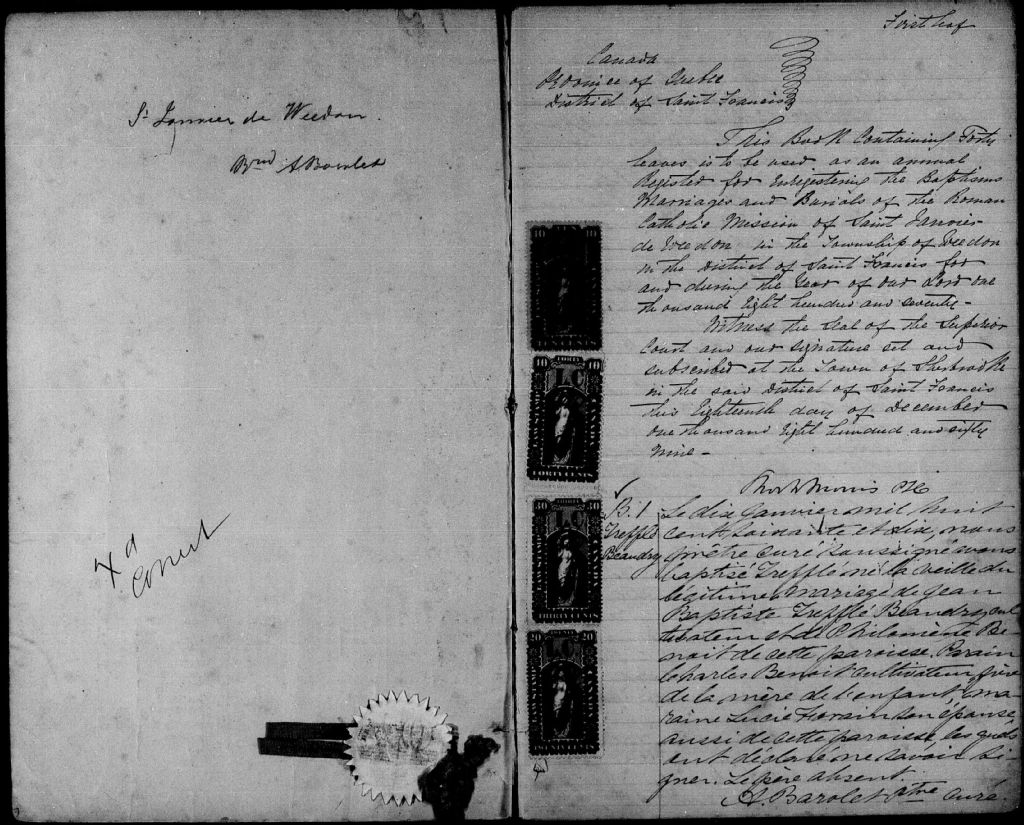 St Janvier de Weedon.
Bmd A Barolet
Xd
correct
First leaf
Canada
Province of Quebec
District of Saint Francis
This Book Containing Forty
leaves is to be used as an annual
Register for Enregistering the Baptisms
Marriages and Burials of the Roman
Catholic Mission of Saint Janvier
de Weedon in the Township of Weedon
in the District of Saint Francis for
and during the Year of our Lord one
thousand Eight hundred and seventy -
Witness the Seal of the Superior
Court and our signature set and
subscribed at the Town of Sherbrooke
in the said District of Saint Francis
this Eighteenth day of December
one thousand Eight hundred and sixty
nine -
Morris
10 TEN 10
TEN CENTS
10 FORTY 10
LC
FORTY CENTS
30 30
LC
THIRTY CENTS
20 TWENTY 20
LC
TWENTY CENTS
B. 1
Trefflé
Beaudry
Le dix janvier mil huit
cent soixante et dix, nous
prêtre curé soussigné avons
baptisé Trefflé né la veille du
légitime mariage de Jean
Baptiste Trefflé Beaudry cul
tivateur et de Philomène Be
noit de cette paroisse. Parain
Charles Benoit cultivateur frère
de la mère de l'enfant, ma
raine Lucie son épouse
aussi de cette paroisse, les quels
ont déclaré ne savoir si
gner. Le père absent.
A. Barolet ptre curé.